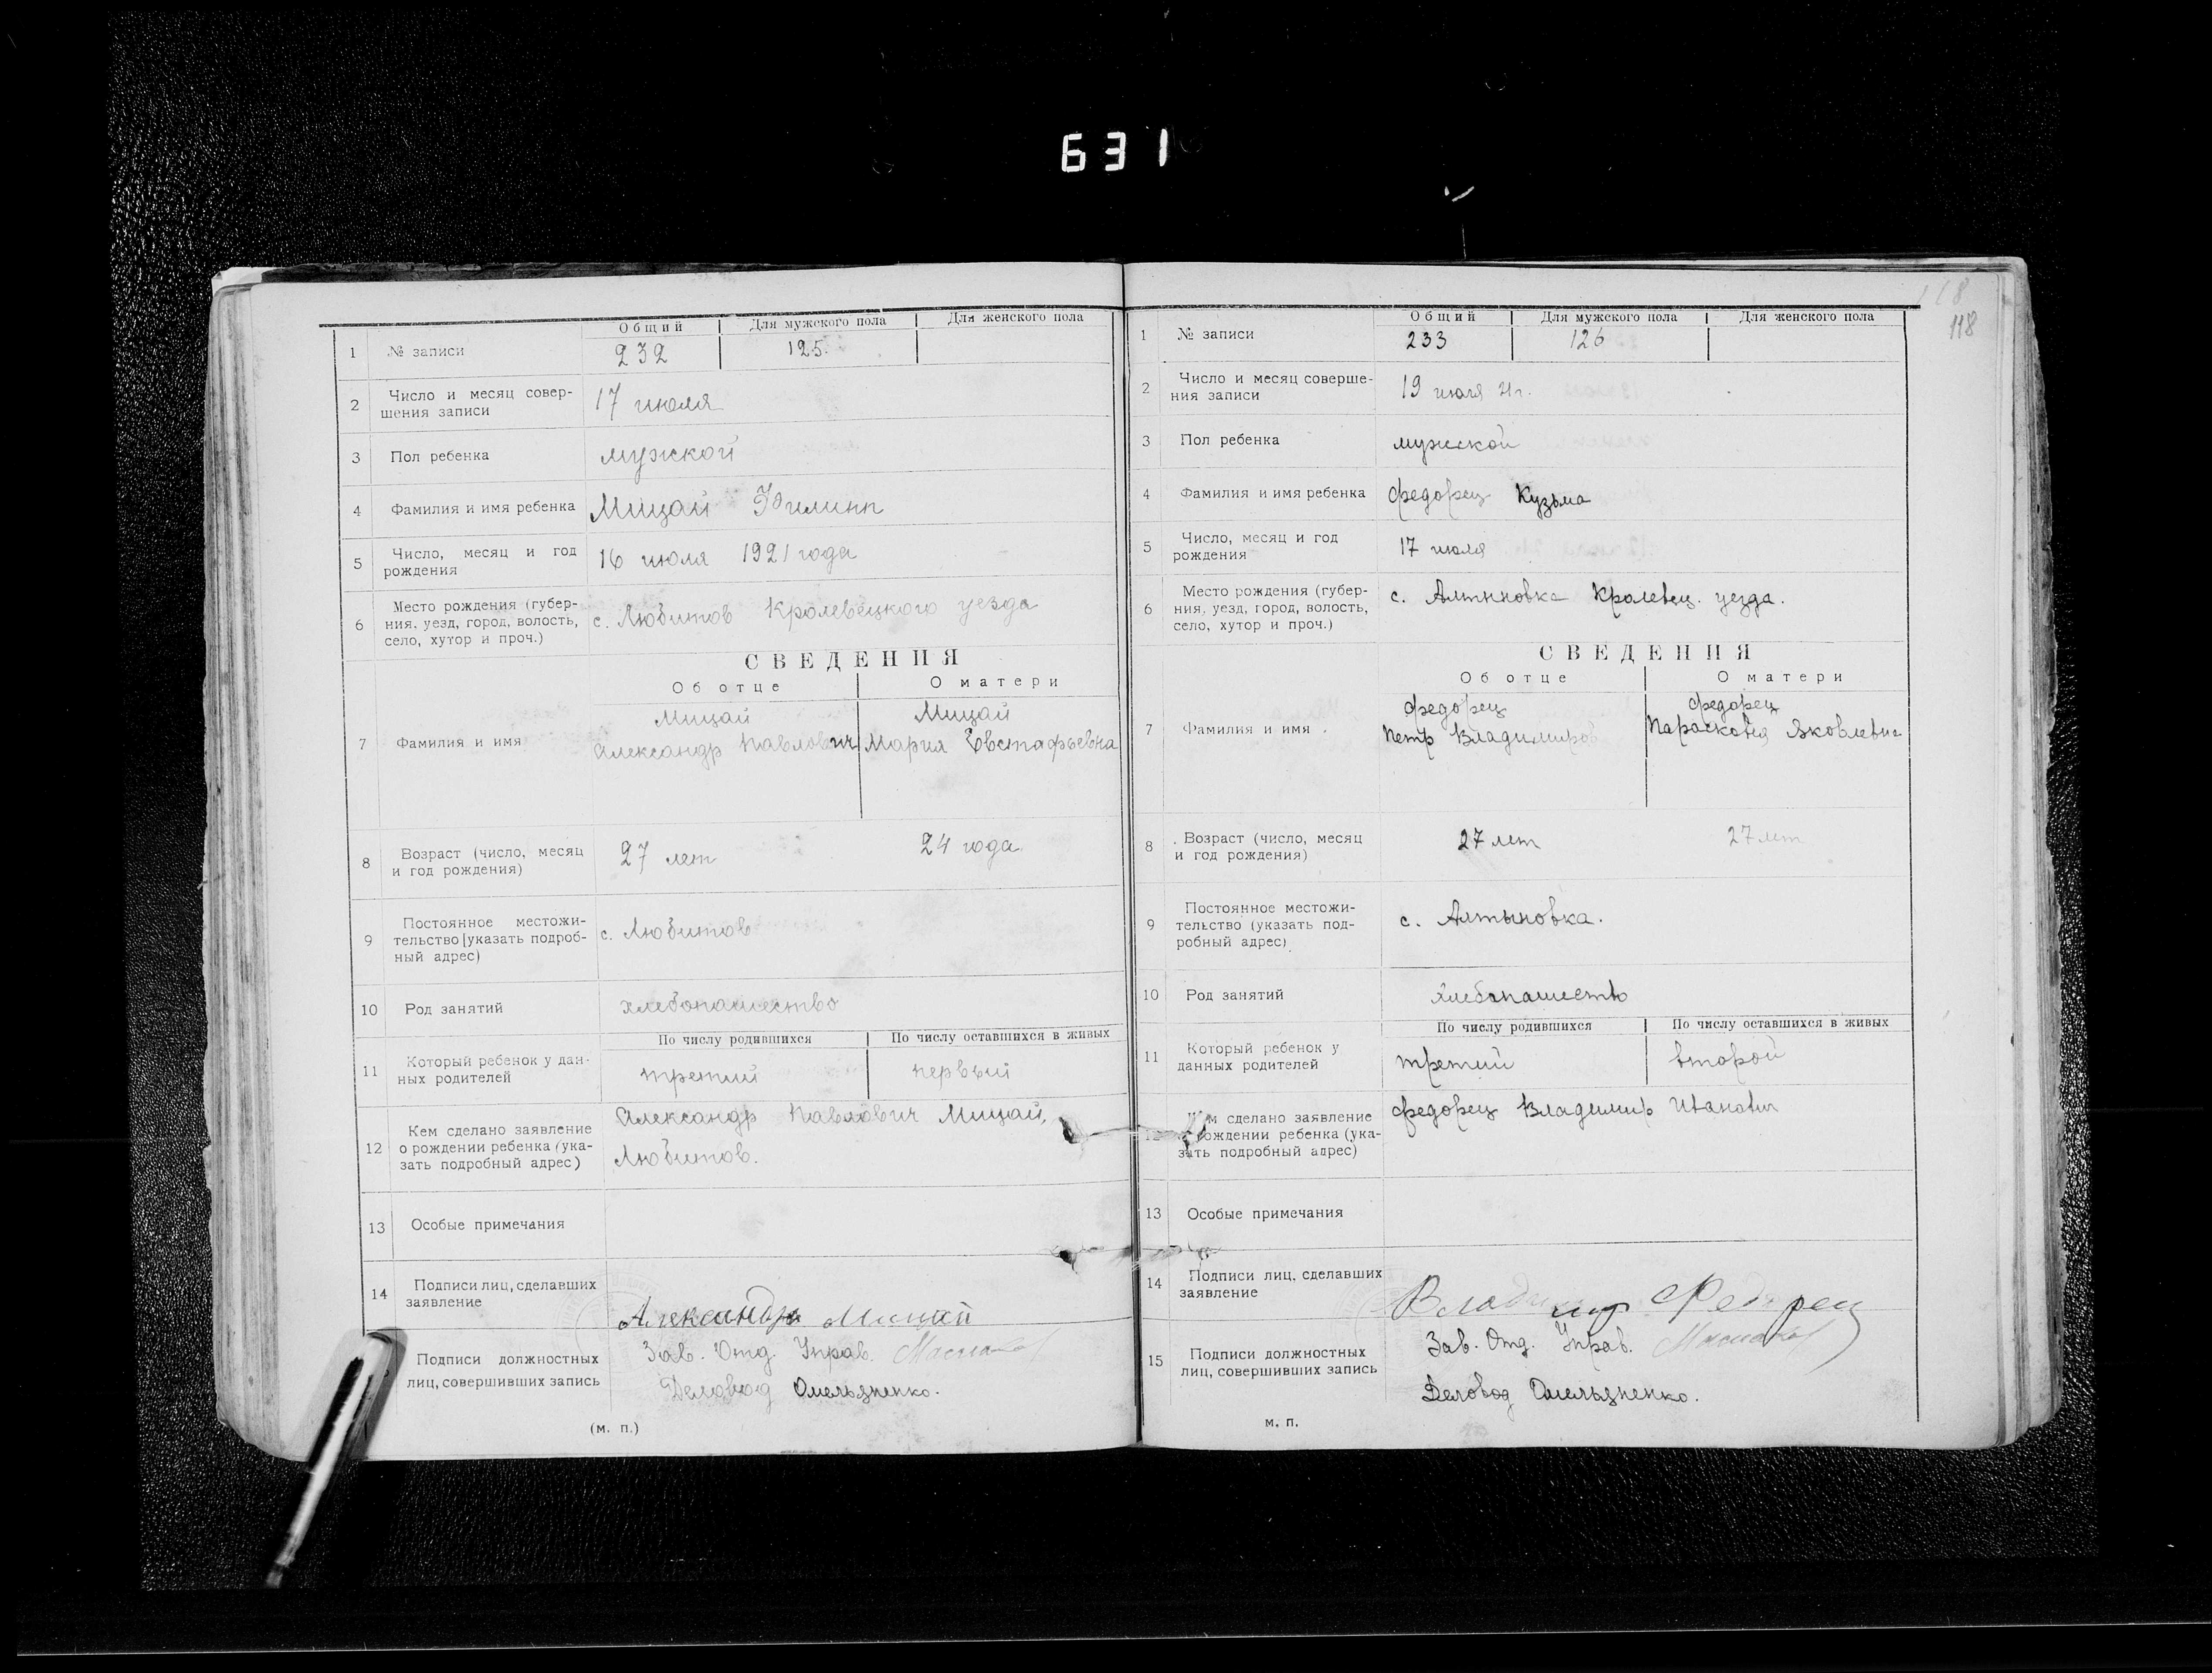 631
Общий Для мужского пола Для женского пола
1 № записи 232 125.
2 Число и месяц совер-
шения записи 17 июля
3 Пол ребенка мужской
4 Фамилия и имя ребенка Мицай Филипп
5 Число, месяц и год
рождения 16 июля 1921 года
6 Место рождения (губер-
ния, уезд, город, волость,
село, хутор и проч.) с. Любитов Кролевецкого уезда
СВЕДЕНИЯ
Об отце О матери
7 Фамилия и имя
Мицай Мицай
Александр Павлович Мария Евстафьевна
8 Возраст (число, месяц
и год рождения) 27 лет 24 года
9 Постоянное местожи-
тельство (указать подроб-
ный адрес) с. Любитов
10 Род занятий хлебопашество
По числу родившихся По числу оставшихся в живых
11 Который ребенок у дан-
ных родителей третий первый
12 Кем сделано заявление
о рождении ребенка (ука-
зать подробный адрес)
Александр Павлович Мицай,
Любитов.
13 Особые примечания
14 Подписи лиц, сделавших
заявление Александр Мицай
Подписи должностных
лиц, совершивших запись
Зав. Отд. Управ.
Деловод Омельяненко.
(м. п.)
118
118
Общий Для мужского пола Для женского пола
1 № записи 233 126
2 Число и месяц соверше-
ния записи 19 июля 21г.
3 Пол ребенка мужской
4 Фамилия и имя ребенка Федорец Кузьма
5 Число, месяц и год
рождения 17 июля
6 Место рождения (губер-
ния, уезд, город, волость,
село, хутор и проч.) с. Алтыновка Кролевец. уезда.
СВЕДЕНИЯ
Об отце О матери
7 Фамилия и имя
Федорец Федорец
Петр Владимиров Парасковия Яковлевна
8 Возраст (число, месяц
и год рождения) 27 лет 27 лет
9 Постоянное местожи-
тельство (указать под-
робный адрес) с. Алтыновка.
10 Род занятий хлебопашество
По числу родившихся По числу оставшихся в живых
11 Который ребенок у
данных родителей третий второй
12 Кем сделано заявление
о рождении ребенка (ука-
зать подробный адрес) Федорец Владимир Иванович
13 Особые примечания
14 Подписи лиц, сделавших
заявление Владимир Федорец
15 Подписи должностных
лиц, совершивших запись
Зав. Отд. Управ.
Деловод Омельяненко.
м. п.